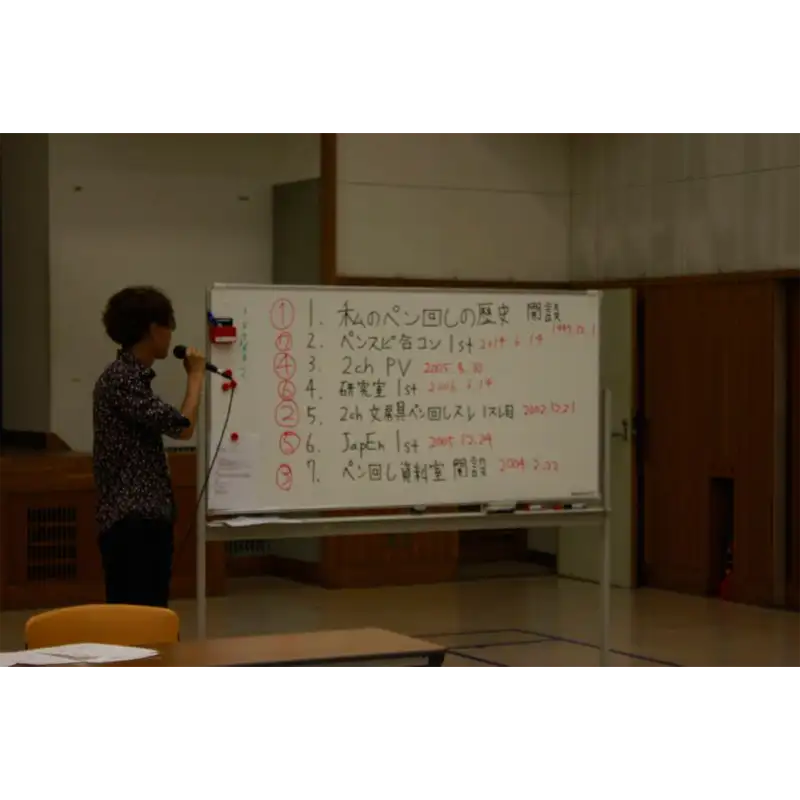 ① 1. 私のペン回しの歴史 開設 1997.12.1
⑦ 2. ペンスピ合コン 1st 2014 6 14
④ 3. 2ch PV 2005.8.10
⑥ 4. 研究室 1st 2006
② 5. 2ch 文房具ペン回しスレ 1スレ目 2002.12.21
⑤ 6. JapEn 1st 2005 12.24
③ 7. ペン回し資料室 開設 2004 2.22